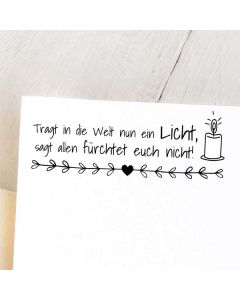 Tragt in die Welt nun ein Licht,
sagt allen fürchtet euch nicht!